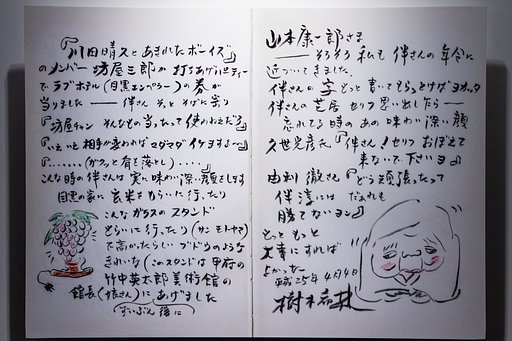 『川田晴久とあきれたボーイズ』
のメンバー 坊屋三郎が 打ちあげパーティー
で ラブホテル(目黒エンペラー)の 券が
当りました ── 伴さん そっと そばに寄り
『坊屋チャン そんなもの当ったって 使わねえだろ』
『いえいえ 相手が変われば マダマダ イケますョ〜』
『……(ガクッと肩を落とし)……』
こんな時の伴さんは 実に味わい深い顔をします
目黒の家に 玄米をもらいに行ったり
こんなガラスのスタンド
もらいに行ったり(サンモトヤマ
で 高かったらしい ブドウのような
きれいな(このスタンドは 甲府の
竹中英太郎美術館の
館長(娘さん)にあげました
(ずいぶん後に)
山本康一郎さま
── そろそろ 私も 伴さんの年令に
近づいてきました。
伴さんの字 もっと書いてもらっとけばヨカッタ
伴さんの芝居 セリフ思い出したら ──
忘れてる時の あの味わい深い顔
久世光彦氏『伴さん!セリフ おぼえて
来ないで下さいョ』
由利徹さん『どう頑張ったって
伴淳には だれも
勝てないヨ』
もっと もっと
大事にすれば
よかった
平成25年4月4日
樹木希林